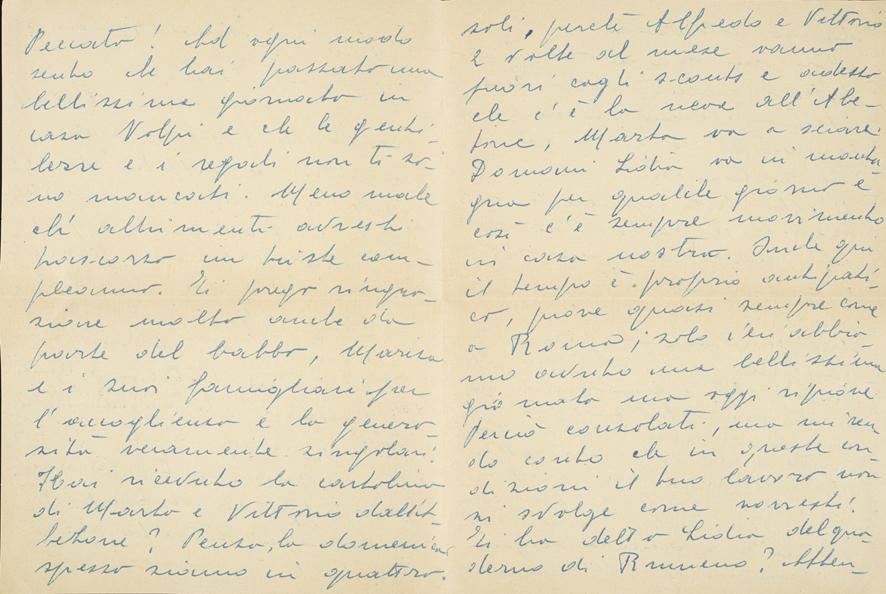 Peccato! Ad ogni modo
sento che hai passato una
bellissima giornata in
casa Volpi e che le genti-
lezze e i regali non ti so-
no mancati. Meno male
chè altrimenti avresti
passato un triste com-
pleanno. Ti prego ringra-
ziare molto anche da
parte del babbo, Marisa
e i suoi famigliari per
l'accoglienza e la genero-
sità veramente singolari!
Hai ricevuto la cartolina
di Marta e Vittorio dall'A-
betone? Pensa, la domenica
spesso siamo in quattro.
soli, perchè Alfredo e Vittorio
2 volte al mese vanno
fuori cogli scouts e adesso
che c'è la neve all'Abe-
tone, Marta va a sciare.
Domani Lidia va in monta-
gna per qualche giorno e
così c'è sempre movimento
in casa nostra. Anche qui
il tempo è proprio antipati-
co, piove quasi sempre come
a Roma; solo ieri abbia-
mo avuto una bellissima
giornata ma oggi ripiove.
Perciò consolati, ma mi ren-
do conto che in queste con-
dizioni il tuo lavoro non
si svolge come vorresti!
Ti ha detto Lidia del qua-
derno di Rumeno? Atten-